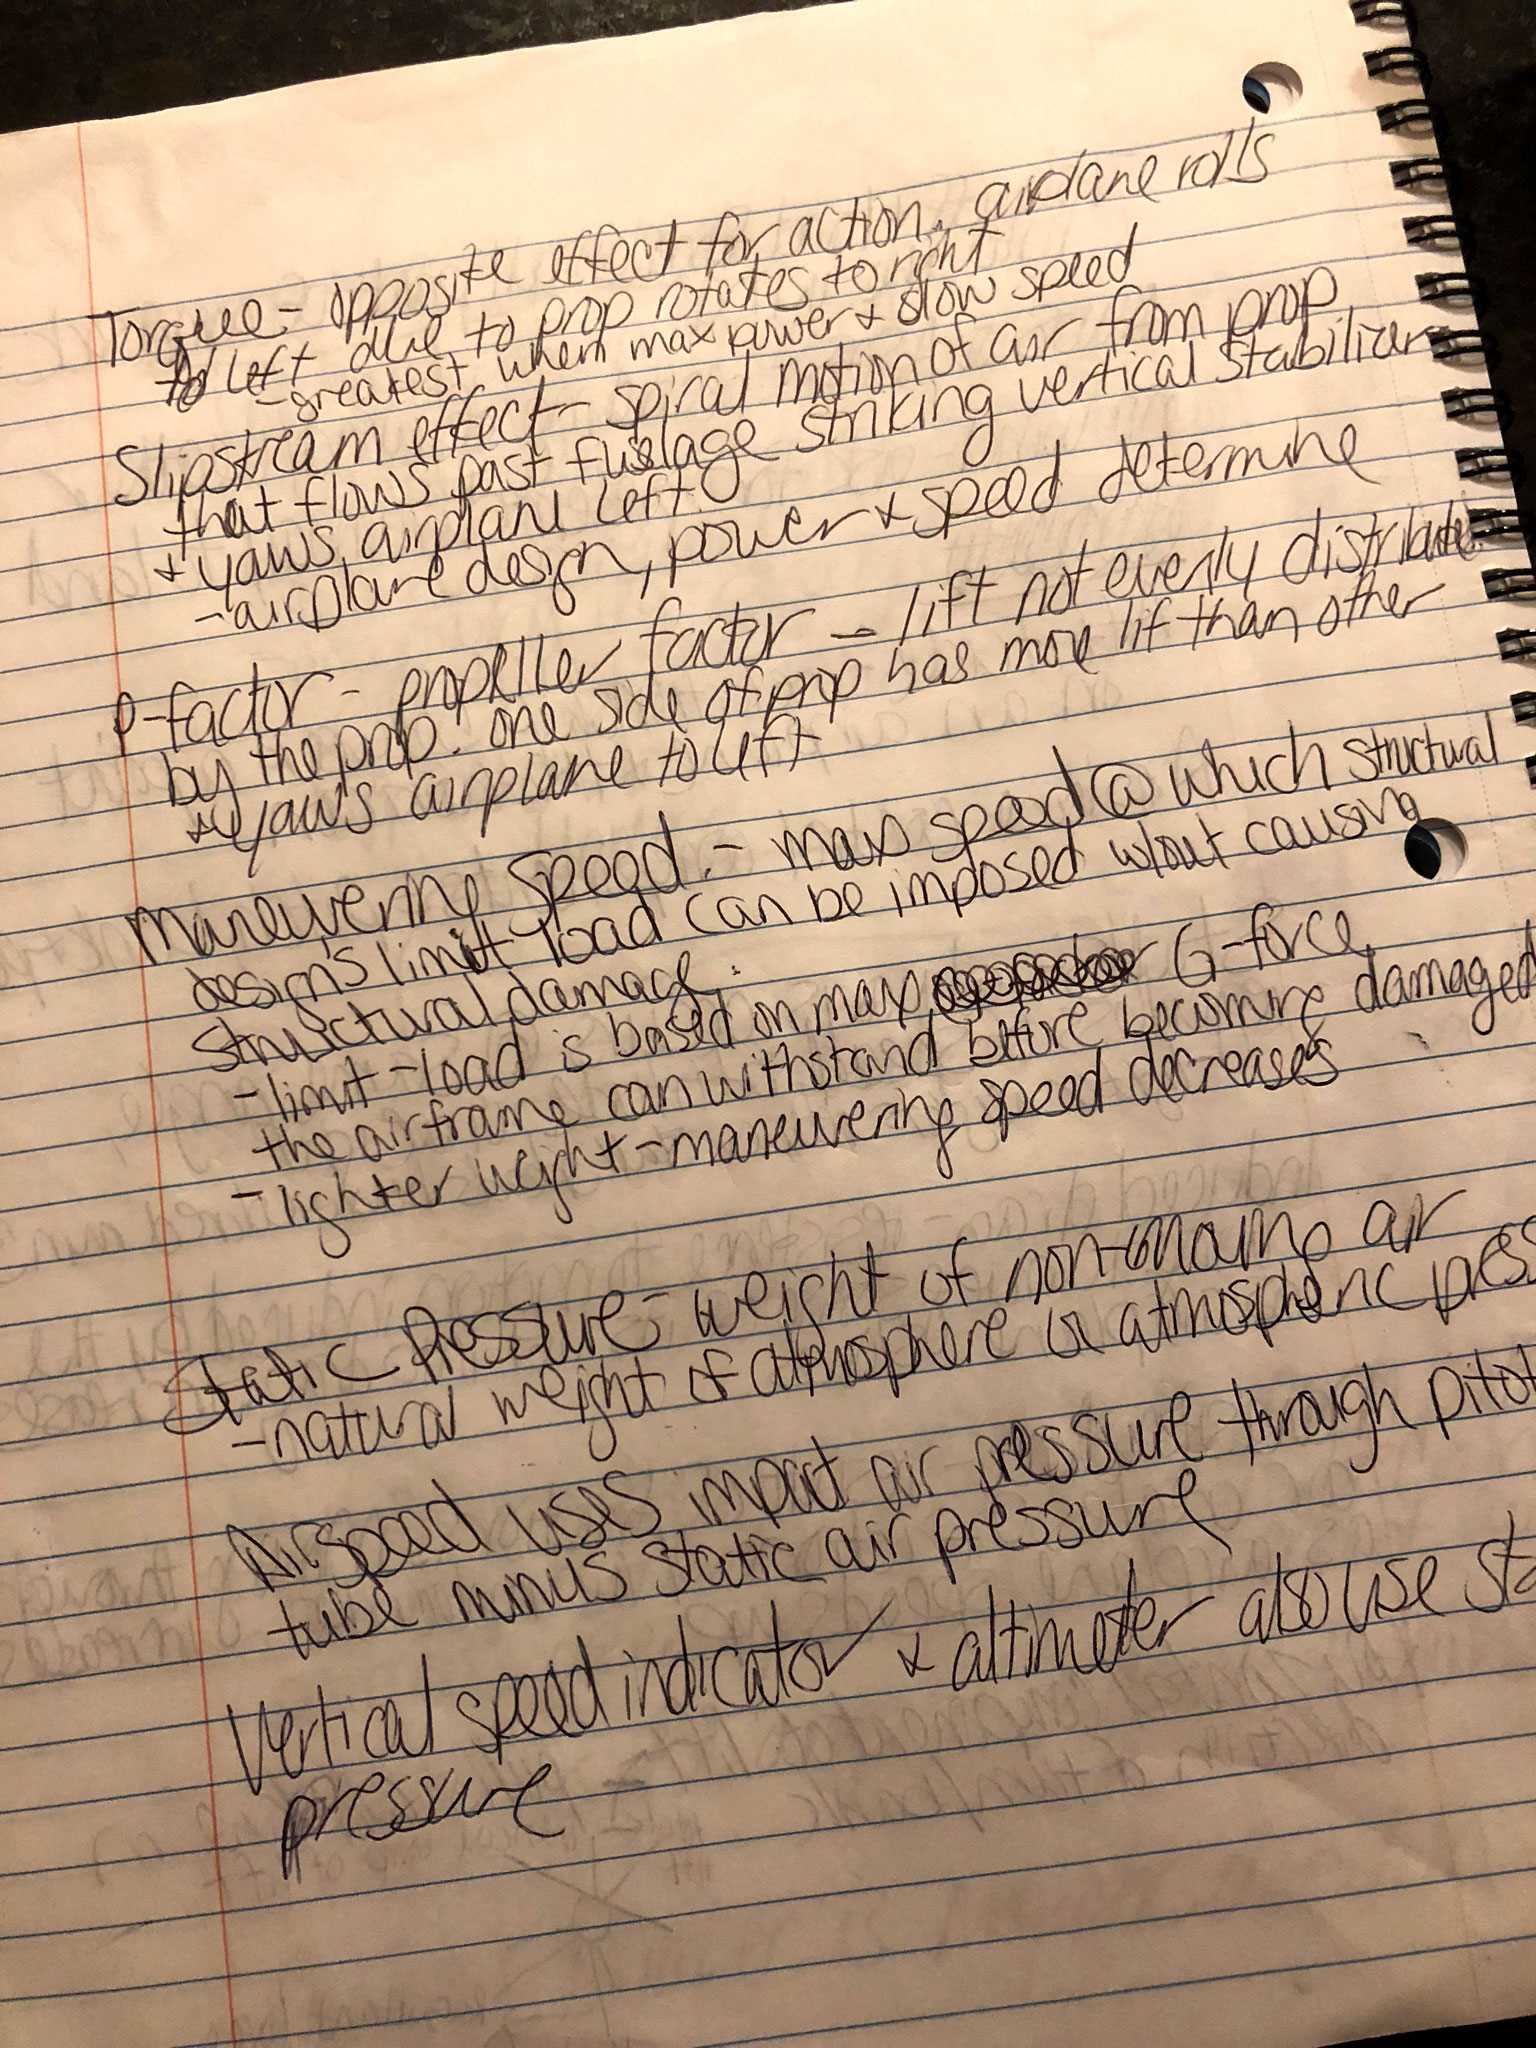 Torque - opposite effect for action. airplane rolls
to left due to prop rotates to right
- greatest when max power & slow speed
Slipstream effect - spiral motion of air from prop
that flows past fuselage striking vertical stabilizer
& yaws airplane left.
- airplane design, power & speed determine
P-factor - propeller factor - lift not evenly distributed
by the prop. one side of prop has more lif than other
yaws airplane to left
Maneuvering Speed. - max speed @ which structural
design's limit load can be imposed w/out causing
structural damage.
- limit-load is based on max G-force
the airframe can withstand before becoming damaged
- lighter weight - maneuvering speed decreases
Static Pressure - weight of non-moving air
- natural weight of atmosphere or atmospheric pres
Airspeed uses impact air pressure through pitot
tube minus static air pressure
Vertical speed indicator & altimeter also use sta
pressure